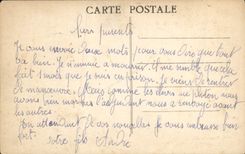 CARTE POSTALE
Chers parents
Je vous envoie deux mots pour vous dire que tout
va bien. Je m'ennuie a mourir. il me semble que cela
fait 1 mois que je suis en prison. Je viens de rentrer
de manoeuvre. Nous sommes les élèves du peloton, nous
avons bien marché l'adjudant nous a renvoyé avant
les autres.
En attendant de vos nouvelles je vous embrasse bien
fort. votre fils André